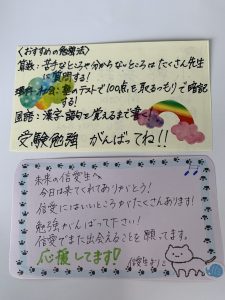 〈おすすめの勉強法〉
算数：苦手なところや分からないところはたくさん先生
に質問する！
理科・社会：塾のテストで100点を取るつもりで暗記
する！
国語：漢字・語句を覚えるまで書く！
受験勉強 がんばってね!!
未来の信愛生へ
今日は来てくれてありがとう！
信愛にはいいところがたくさんあります！
勉強がんばって下さい！
信愛でまた出会えることを願ってます。
応援してます！
信愛生より